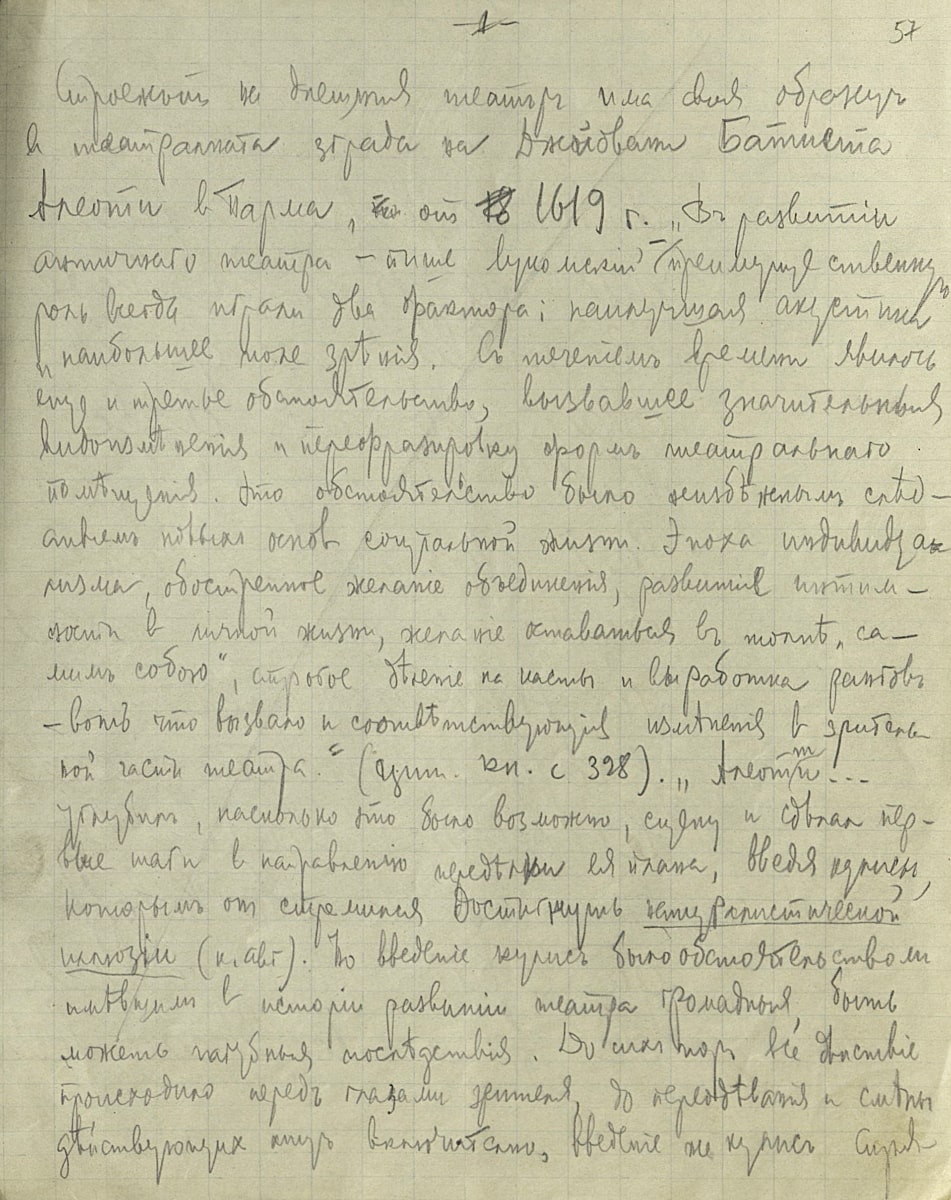 1
57
Строежът на днешния театър има своя образец
в театралната зграда на Джовани Батиста
Алеоти в Парма, от 1619 г. „Въ развитіи
античнаго театра – пише Лукомский – преимущественную
роль всегда играли два фактора: наилучшая акустика
и наибольшее поле зрѣнія. Съ теченіемъ времени явилось
еще и третье обстоятельство, вызвавшее значительныя
видоизмѣненія и перефразировку формъ театральнаго
помѣщенія. Это обстоятельство было неизбѣжнымъ слѣд–
ствіемъ новыхъ основ социальной жизни. Эпоха индивидуа–
лизма, обостренное желаніе объединенія, развитіе интим–
ности в личной жизни, желаніе оставаться въ толпѣ „са–
мимъ собою“, строгое дѣленіе на касты и выработка ранговъ
– вотъ что вызвало и соответствующія измѣненія в зритель
ной части театра.“ (цит. кн. с 328). „Алеотти...
углубилъ, насколько это было возможно, сцену и сдѣлал пер–
вые шаги в направленію передѣлки ея плана, введя кулисы,
которымъ он стремился достигнуть натуралистической
иллюзіи (к. авт). Но введеніе кулисъ было обстоятельством
имѣвшим в исторіи развитіи театра громадныя, быть
можетъ пагубныя послѣдствія. До сихъ поръ все дѣйствіе
происходило передъ глазами зрителя, до переодѣванія и смѣны
дѣйствующих лицъ включительно, введеніе же кулисъ